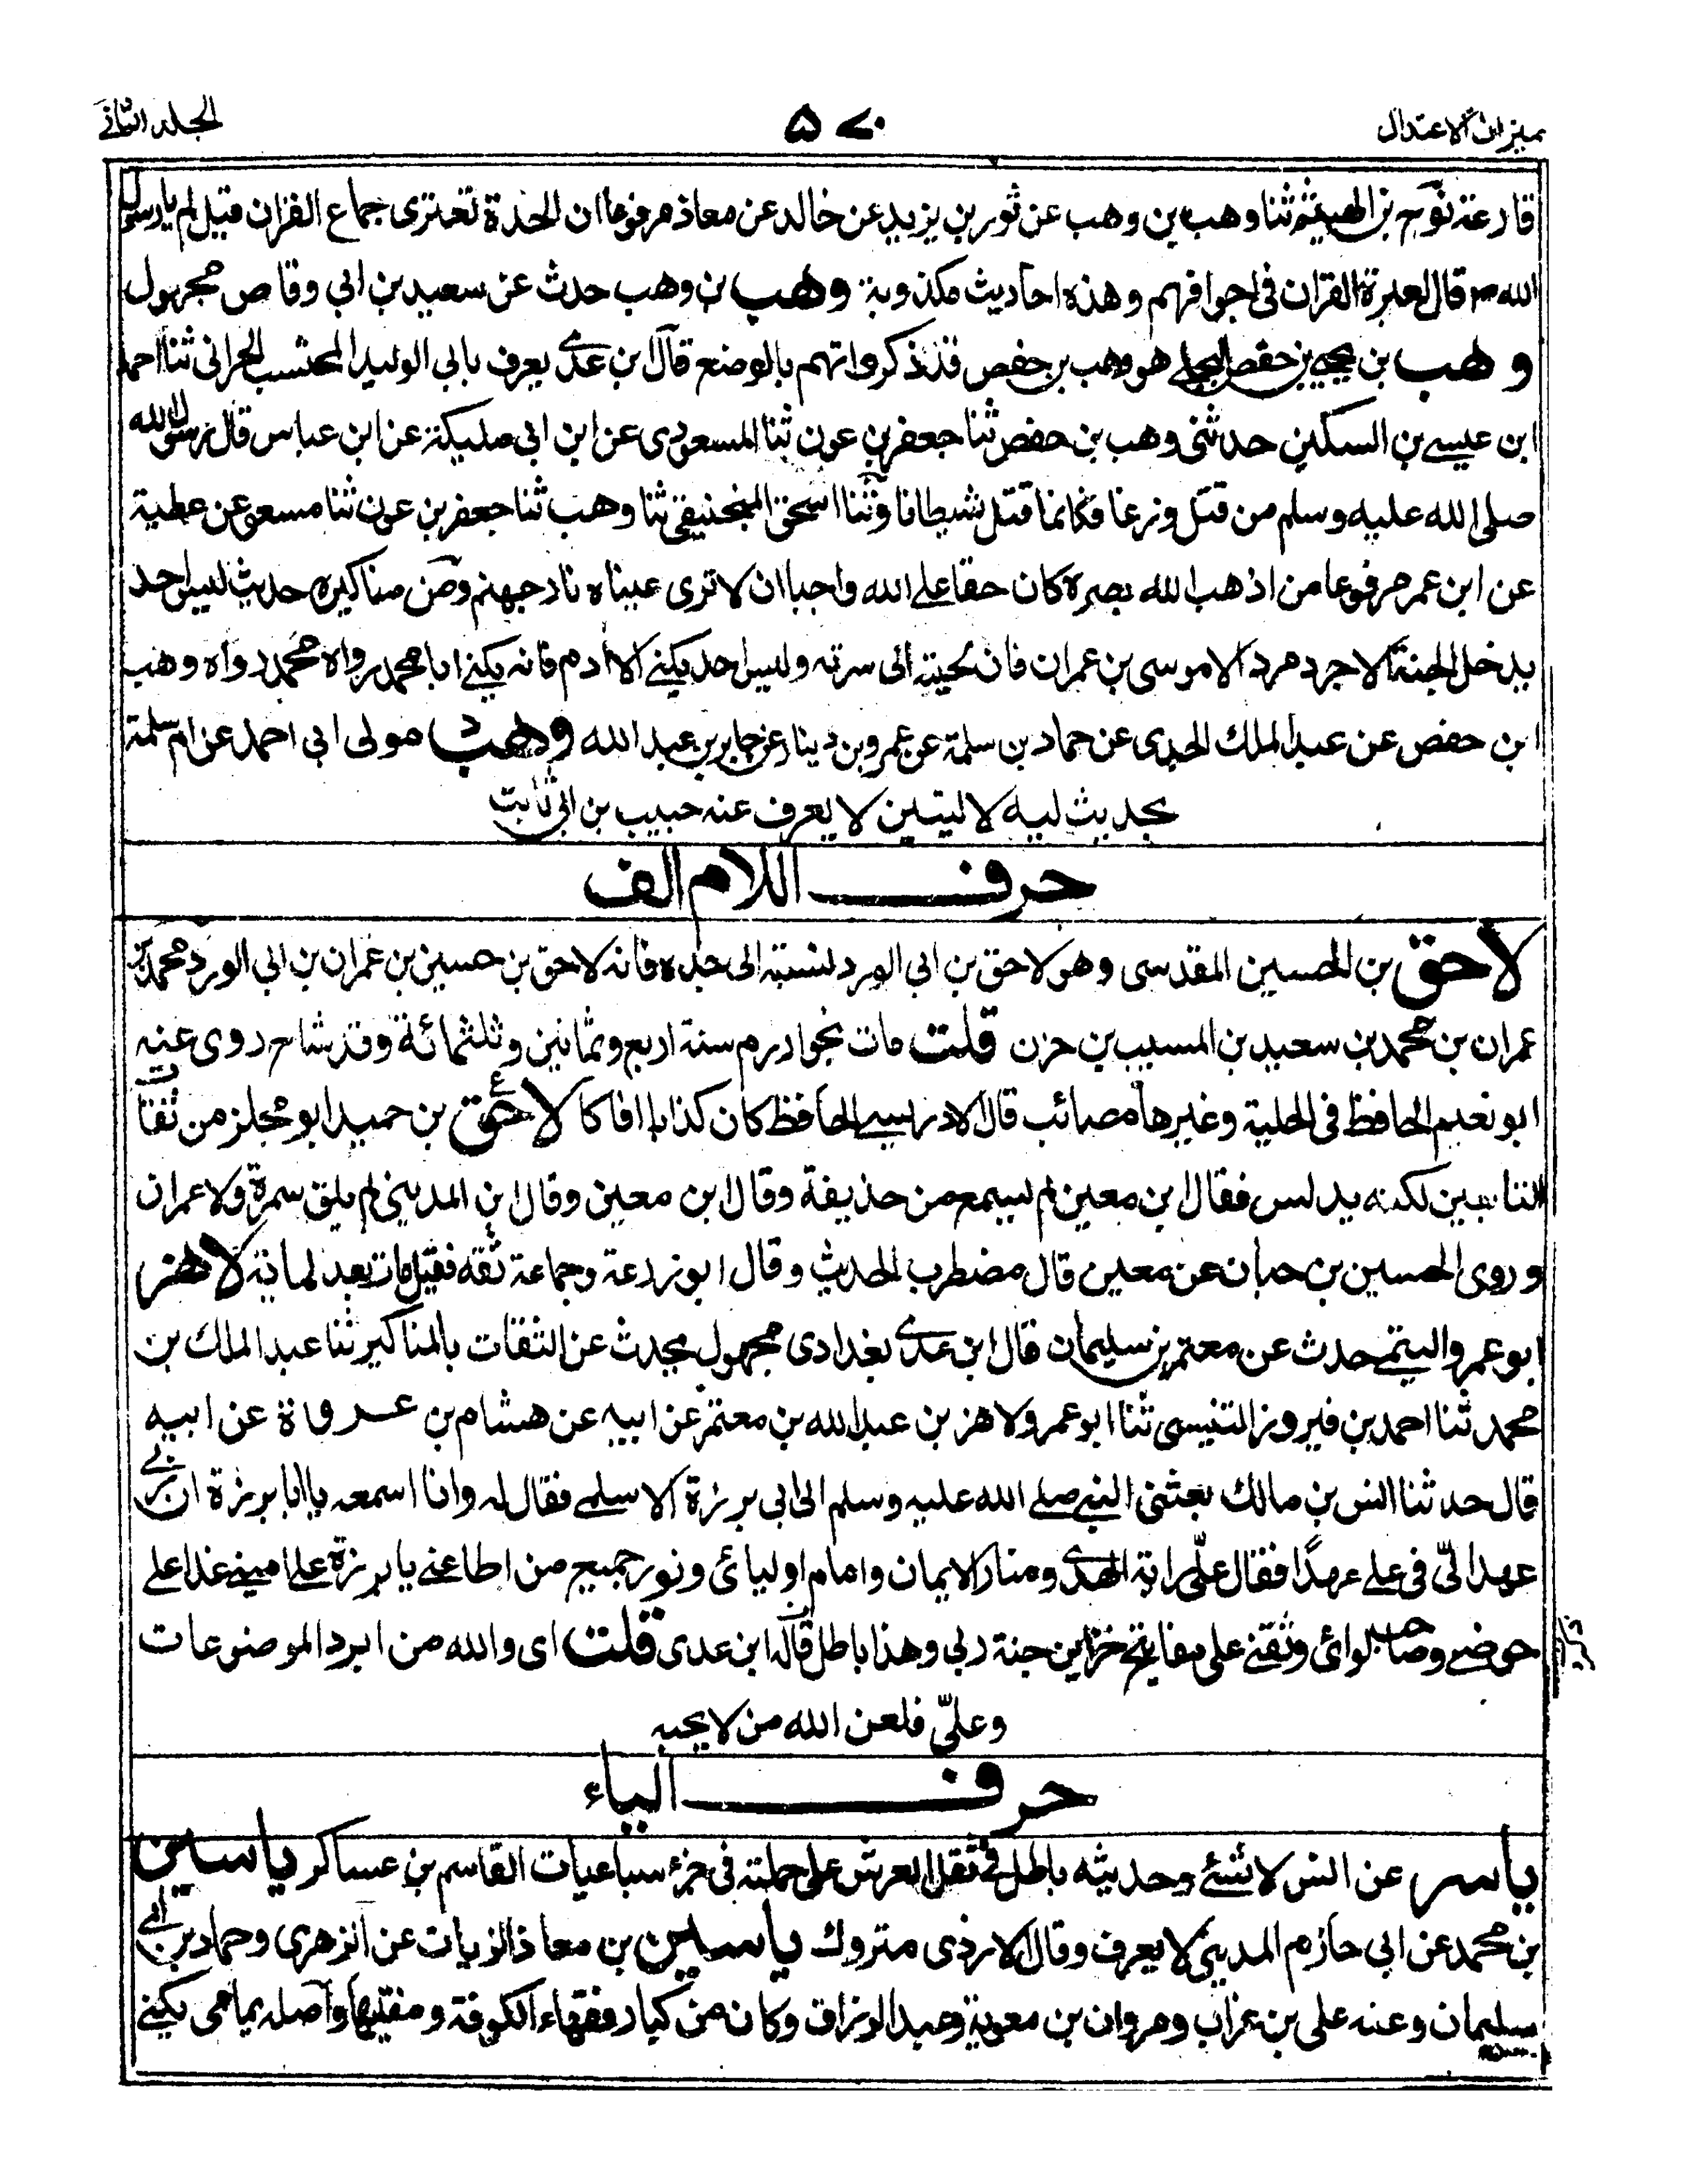 ميزان الاعتدال
٥٧٠
الجلد الثاني
قارعة نوح بن الهيثم ثنا وهب بن وهب عن ثور بن يزيد عن خالد عن معاذ مرفوعا ان الحدة تعتري جماع القران قيل لم يا رسول
الله قال لعيرة القران في اجوافهم وهذه احاديث مكذوبة وهب بن وهب حدث عن سعيد بن ابي وقاص مجهول
وهب بن يحيى بن حفص البجلي هو وهب بن حفص قد ذكر واتهم بالوضع قال ابن عدي يعرف بابي الوليد المحتسب الحراني ثنا احمد
ابن عيسى بن السكين حدثني وهب بن حفص ثنا جعفر بن عون ثنا المسعودي عن ابن ابي مليكة عن ابن عباس قال رسول الله
صلى الله عليه وسلم من قتل وزغا فكانما قتل شيطانا وثنا اسحق المنجنيقي ثنا وهب ثنا جعفر بن عون ثنا مسعر عن عطية
عن ابن عمر مرفوعا من اذهب الله بصره كان حقا على الله واجبا ان لا ترى عيناه نار جهنم ومن مناكيره حديث ليس احد
يدخل الجنة الا جرد مرد الا موسى بن عمران فان لحيته الى سرته وليس احد يكنى الا ادم فانه يكنى ابا محمد رواه محمد رواه وهب
ابن حفص عن عبد الملك الجدي عن حماد بن سلمة عن عمرو بن دينار عن جابر بن عبد الله وهب مولى ابي احمد عن ام سلمة
بحديث ليه لا ليتين لا يعرف عنه حبيب بن ابي ثابت
حرف اللام الف
لاحق بن الحسين المقدسي وهو لاحق بن ابي الورد لنسبته الى جده فانه لاحق بن حسين بن عمران بن ابي الورد محمد بن
عمران بن محمد بن سعيد بن المسيب بن حزن قلت مات بخوارزم سنة اربع وثمانين وثلثمائة وقد شاخ روى عنه
ابو نعيم الحافظ في الحلية وغيرها مصائب قال الادريسي الحافظ كان كذابا افاكا لاحق بن حميد ابو مجلز من ثقات
التابعين لكنه يدلس فقال ابن معين لم يسمع من حذيفة وقال ابن معين وقال ابن المديني لم يلق سمرة ولا عمران
وروى الحسين بن حبان عن معين قال مضطرب الحديث وقال ابو زرعة وجماعة ثقة فقيل مات بعد لماية لاهز
ابو عمرو التيمي حدث عن معتمر بن سليمان قال ابن عدي بغدادي مجهول يحدث عن الثقات بالمناكير ثنا عبد الملك بن
محمد ثنا احمد بن فيروز التنيسي ثنا ابو عمرو لاهز بن عبد الله بن معتمر عن ابيه عن هشام بن عروة عن ابيه
قال حدثنا انس بن مالك بعثني النبي صلى الله عليه وسلم الى ابي برزة الاسلمي فقال له وانا اسمعه يا ابا برزة ان ربي
عهد الي في علي عهدا فقال علي راية الهدى ومنار الايمان وامام اوليائي ونور جميع من اطاعني يا برزة علي اميني غدا على
حوضي وصاحب لوائي وثقتي على مفاتيح خزاين جنة ربي وهذا باطل قاله ابن عدي قلت اي والله من ابرد الموضوعات
وعليّ فلعن الله من لا يحبه
حرف الياء
ياسر عن انس لا شئ وحديثه باطل في ثقل العرش على حملته في جزء سباعيات القاسم بن عساكر ياسين
بن محمد عن ابي حازم المديني لا يعرف وقال الازدي متروك ياسين بن معاذ الزيات عن الزهري وحماد بن ابي
سليمان وعنه علي بن غراب ومروان بن معوية وعبد الرزاق وكان من كبار فقهاء الكوفة ومفتيها واصله يمامي يكنى